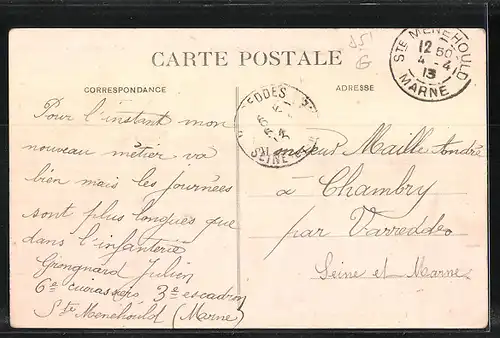 CARTE POSTALE
CORRESPONDANCE
Pour l'instant mon
nouveau métier va
bien mais les journées
sont plus longues que
dans l'infanterie
Grongnard Julien
6e cuirassiers 3e escadron
Ste Menehould (Marne)
ADRESSE
Monsieur Maille André
à Chambry
par Varreddes
Seine et Marne
STE MENEHOULD
12 50
4 - 4
13
MARNE
EDDES
SEINE